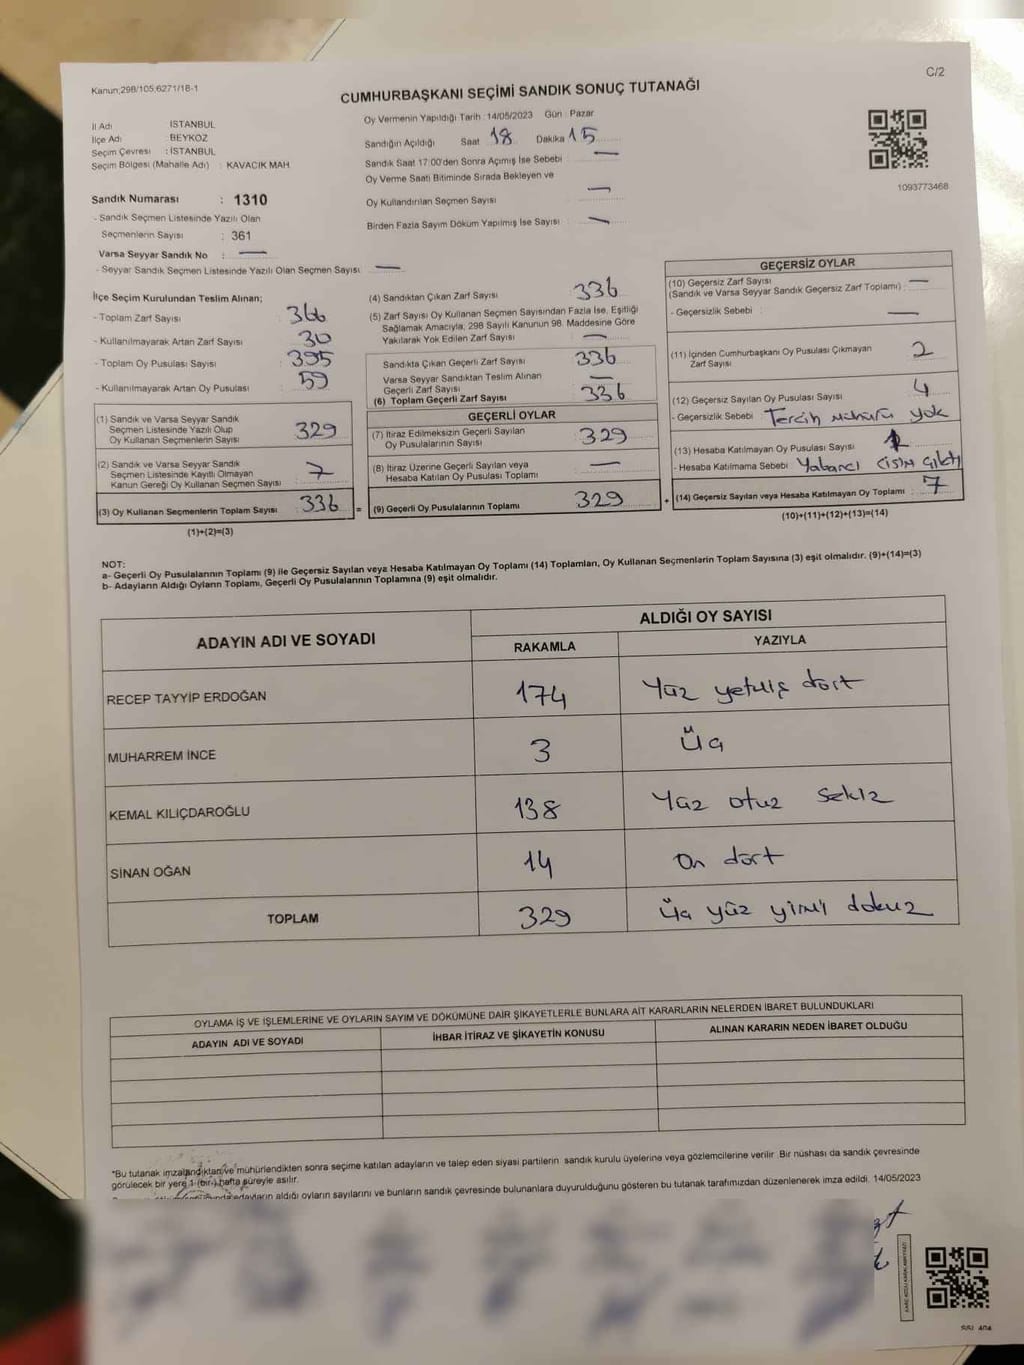 Kanun;298/105;6271/18-1
C/2
CUMHURBAŞKANI SEÇİMİ SANDIK SONUÇ TUTANAĞI
İl Adı İSTANBUL
İlçe Adı : BEYKOZ
Seçim Çevresi : İSTANBUL
Seçim Bölgesi (Mahalle Adı) : KAVACIK MAH.
Oy Vermenin Yapıldığı Tarih : 14/05/2023 Gün : Pazar
Sandığın Açıldığı Saat 18 Dakika 15
Sandık Saat 17:00'den Sonra Açılmış İse Sebebi —
Oy Verme Saati Bitiminde Sırada Bekleyen ve
Oy Kullandırılan Seçmen Sayısı —
Birden Fazla Sayım Döküm Yapılmış İse Sayısı —
1093773468
Sandık Numarası : 1310
- Sandık Seçmen Listesinde Yazılı Olan
Seçmenlerin Sayısı : 361
Varsa Seyyar Sandık No : —
- Seyyar Sandık Seçmen Listesinde Yazılı Olan Seçmen Sayısı —
İlçe Seçim Kurulundan Teslim Alınan;
- Toplam Zarf Sayısı 366
- Kullanılmayarak Artan Zarf Sayısı 30
- Toplam Oy Pusulası Sayısı 395
- Kullanılmayarak Artan Oy Pusulası 59
(1) Sandık ve Varsa Seyyar Sandık
Seçmen Listesinde Yazılı Olup
Oy Kullanan Seçmenlerin Sayısı 329
(2) Sandık ve Varsa Seyyar Sandık
Seçmen Listesinde Kayıtlı Olmayan
Kanun Gereği Oy Kullanan Seçmen Sayısı 7
(3) Oy Kullanan Seçmenlerin Toplam Sayısı 336 =
(1)+(2)=(3)
(4) Sandıktan Çıkan Zarf Sayısı 336
(5) Zarf Sayısı Oy Kullanan Seçmen Sayısından Fazla İse, Eşitliği
Sağlamak Amacıyla; 298 Sayılı Kanunun 98. Maddesine Göre
Yakılarak Yok Edilen Zarf Sayısı —
Sandıkta Çıkan Geçerli Zarf Sayısı 336
Varsa Seyyar Sandıktan Teslim Alınan
Geçerli Zarf Sayısı —
(6) Toplam Geçerli Zarf Sayısı 336
GEÇERLİ OYLAR
(7) İtiraz Edilmeksizin Geçerli Sayılan
Oy Pusulalarının Sayısı 329
(8) İtiraz Üzerine Geçerli Sayılan veya
Hesaba Katılan Oy Pusulası Toplamı —
(9) Geçerli Oy Pusulalarının Toplamı 329 +
GEÇERSİZ OYLAR
(10) Geçersiz Zarf Sayısı —
(Sandık ve Varsa Seyyar Sandık Geçersiz Zarf Toplamı) :
- Geçersizlik Sebebi : —
(11) İçinden Cumhurbaşkanı Oy Pusulası Çıkmayan
Zarf Sayısı 2
(12) Geçersiz Sayılan Oy Pusulası Sayısı 4
- Geçersizlik Sebebi Tercih mührü yok
(13) Hesaba Katılmayan Oy Pusulası Sayısı 1
- Hesaba Katılmama Sebebi Yabancı cisim çıktı
(14) Geçersiz Sayılan veya Hesaba Katılmayan Oy Toplamı 7
(10)+(11)+(12)+(13)=(14)
NOT:
a- Geçerli Oy Pusulalarının Toplamı (9) ile Geçersiz Sayılan veya Hesaba Katılmayan Oy Toplamı (14) Toplamları, Oy Kullanan Seçmenlerin Toplam Sayısına (3) eşit olmalıdır. (9)+(14)=(3)
b- Adayların Aldığı Oyların Toplamı, Geçerli Oy Pusulalarının Toplamına (9) eşit olmalıdır.
ADAYIN ADI VE SOYADI
ALDIĞI OY SAYISI
RAKAMLA YAZIYLA
RECEP TAYYİP ERDOĞAN 174 Yüz yetmiş dört
MUHARREM İNCE 3 Üç
KEMAL KILIÇDAROĞLU 138 Yüz otuz sekiz
SİNAN OĞAN 14 On dört
TOPLAM 329 Üç yüz yirmi dokuz
OYLAMA İŞ VE İŞLEMLERİNE VE OYLARIN SAYIM VE DÖKÜMÜNE DAİR ŞİKAYETLERLE BUNLARA AİT KARARLARIN NELERDEN İBARET BULUNDUKLARI
ADAYIN ADI VE SOYADI İHBAR İTİRAZ VE ŞİKAYETİN KONUSU ALINAN KARARIN NEDEN İBARET OLDUĞU
*Bu tutanak imzalandıktan ve mühürlendikten sonra seçime katılan adayların ve talep eden siyasi partilerin sandık kurulu üyelerine veya gözlemcilerine verilir. Bir nüshası da sandık çevresinde
görülecek bir yere 1 (bir) hafta süreyle asılır.
adayların aldığı oyların sayılarını ve bunların sandık çevresinde bulunanlara duyurulduğunu gösteren bu tutanak tarafımızdan düzenlenerek imza edildi. 14/05/2023